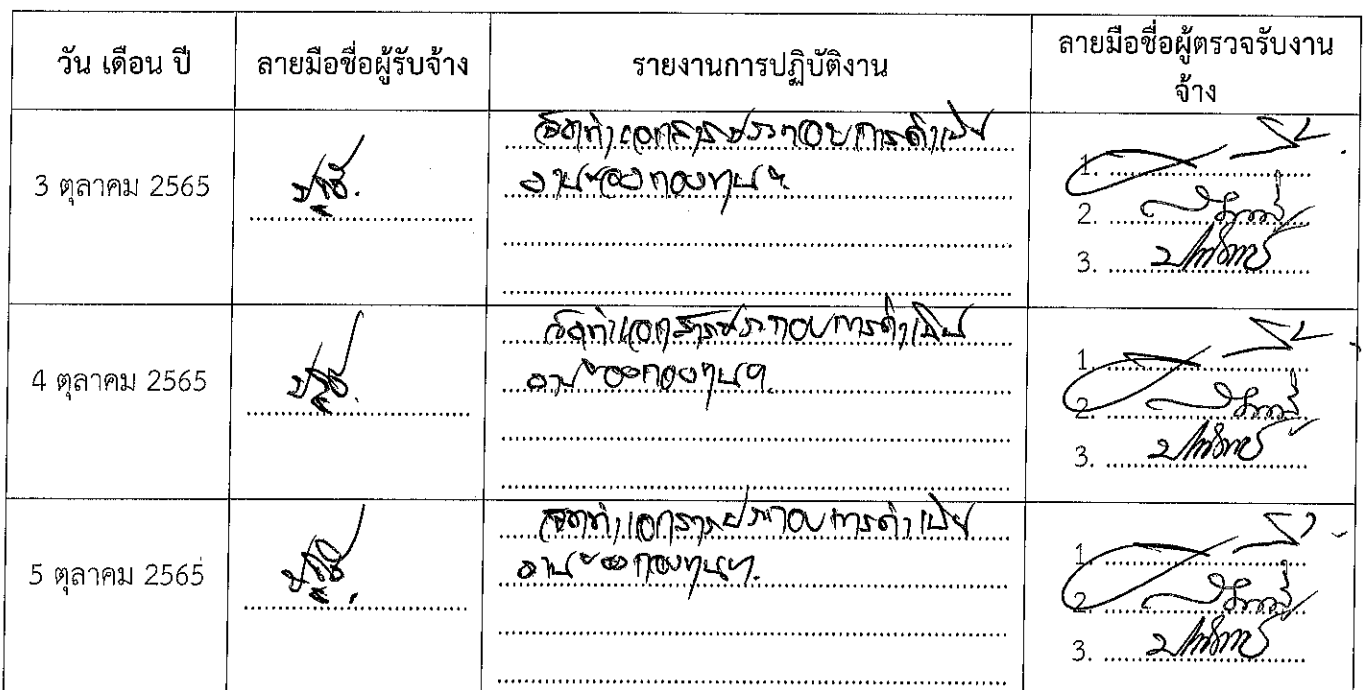 วัน เดือน ปี
ลายมือชื่อผู้รับจ้าง
รายงานการปฏิบัติงาน
ลายมือชื่อผู้ตรวจรับงาน
จ้าง
3 ตุลาคม 2565
จัดทำเอกสารประกอบการดำเนิน
งานของกองทุนฯ
1.
2.
3.
4 ตุลาคม 2565
จัดทำเอกสารประกอบการดำเนิน
งานของกองทุนฯ
1.
2.
3.
5 ตุลาคม 2565
จัดทำเอกสารประกอบการดำเนิน
งานของกองทุนฯ
1.
2.
3.